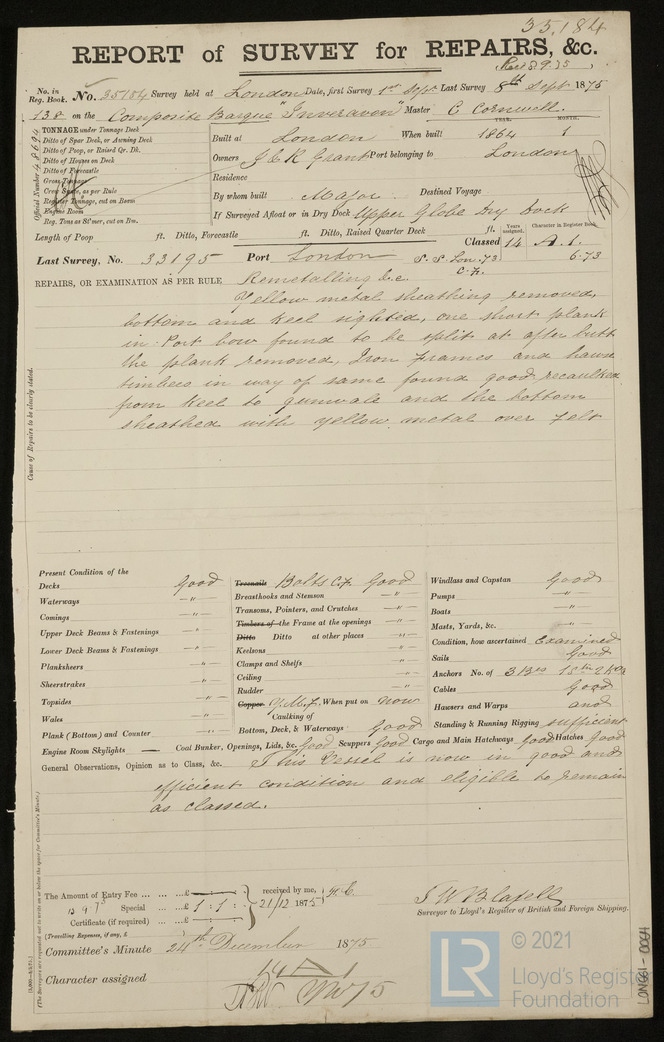 35,184
REPORT of SURVEY for REPAIRS, &c.
Rec 8.9.75
No. in Reg. Book. No. 35184 Survey held at London Date, first Survey 1st Sept Last Survey 8th Sept 1875
138 on the Composite Barque "Inveravon" Master C Cornwell.
Official Number 48694
TONNAGE under Tonnage Deck
Ditto of Spar Deck, or Awning Deck
Ditto of Poop, or Raised Qr. Dk.
Ditto of Houses on Deck
Ditto of Forecastle
Gross Tonnage
Crew Space, as per Rule
Register Tonnage, cut on Beam
Engine Room
Reg. Tons as St'mer, cut on Bm.
YEAR. MONTH.
Built at London When built 1864 1
Owners J & R Grant Port belonging to London
Residence
By whom built Major Destined Voyage
If Surveyed Afloat or in Dry Dock Upper Globe Dry Dock
Length of Poop ft. Ditto, Forecastle ft. Ditto, Raised Quarter Deck ft.
Years assigned. Character in Register Book.
Classed 14 A.1.
Last Survey, No. 33195 Port London S.S Lon. 73 6.73
C.F.
REPAIRS, OR EXAMINATION AS PER RULE Remetalling &c
Yellow metal sheathing removed,
bottom and keel sighted, one short plank
in Port bow found to be split at after butt
the plank removed, Iron Frames and
timbers in way of same found good, recaulked
from keel to gunwale and the bottom
sheathed with yellow metal over felt
Cause of Repairs to be clearly stated.
Present Condition of the
Decks Good
Waterways -"-
Comings -"-
Upper Deck Beams & Fastenings -"-
Lower Deck Beams & Fastenings -"-
Planksheers -"-
Sheerstrakes -"-
Topsides -"-
Wales -"-
Plank (Bottom) and Counter -"-
Treenails Bolts C.F. Good
Breasthooks and Stemson -"-
Transoms, Pointers, and Crutches -"-
Timbers of the Frame at the openings -"-
Ditto Ditto at other places -"-
Keelsons -"-
Clamps and Shelfs -"-
Ceiling -"-
Rudder -"-
Copper Y.M.F. When put on now
Caulking of
Bottom, Deck, & Waterways Good
Windlass and Capstan Good
Pumps -"-
Boats -"-
Masts, Yards, &c. -"-
Condition, how ascertained Examined
Sails Good
Anchors No. of 3 Brs 1 Stm 2 Kgs
Cables Good
Hawsers and Warps and
Standing & Running Rigging sufficient
Engine Room Skylights — Coal Bunker, Openings, Lids, &c. Good Scuppers Good Cargo and Main Hatchways Good Hatches Good
General Observations, Opinion as to Class, &c. This Vessel is now in good and
efficient condition and eligible to remain
as classed.
(The Surveyors are requested not to write on or below the space for Committee's Minute.)
The Amount of Entry Fee ... ... ...£ received by me,
Special ... ...£ 1 : 1 : 21/12 1875
Certificate (if required) ...£
(Travelling Expenses, if any, £
J W Blafell
Surveyor to Lloyd's Register of British and Foreign Shipping.
Committee's Minute 24th December 1875
Character assigned 14 A 1
LR
© 2021
Lloyd's Register
Foundation